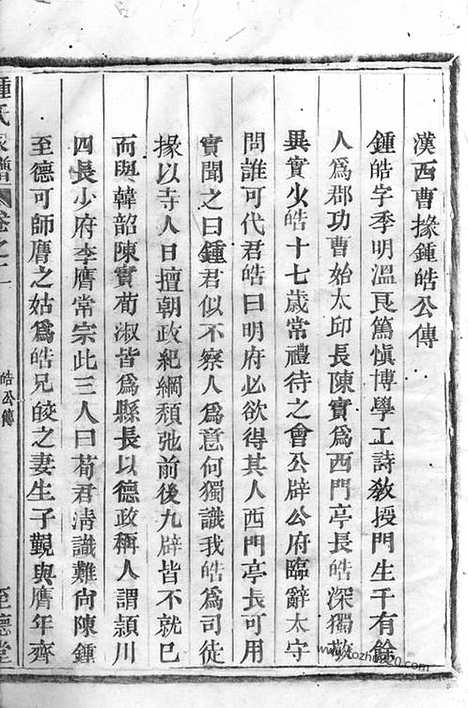 漢西曹掾鍾皓公傳
鍾皓字季明溫良篤愼博學工詩敎授門生千有餘
人爲郡功曹始太邱長陳實爲西門亭長皓深獨敬
異實少皓十七歲常禮待之會公辟公府臨辭太守
問誰可代君皓曰明府必欲得其人西門亭長可用
實聞之曰鍾君似不察人爲意何獨識我皓爲司徒
掾以寺人日擅朝政紀綱頹弛前後九辟皆不就已
而與韓韶陳實荀淑皆爲縣長以德政稱人謂潁川
四長少府李膺常宗此三人曰荀君淸識難尙陳鍾
至德可師膺之姑爲皓兄皎之妻生子覲與膺年齊
鍾氏家譜 卷之二 皓公傳 至德堂
www.tozhu220.com